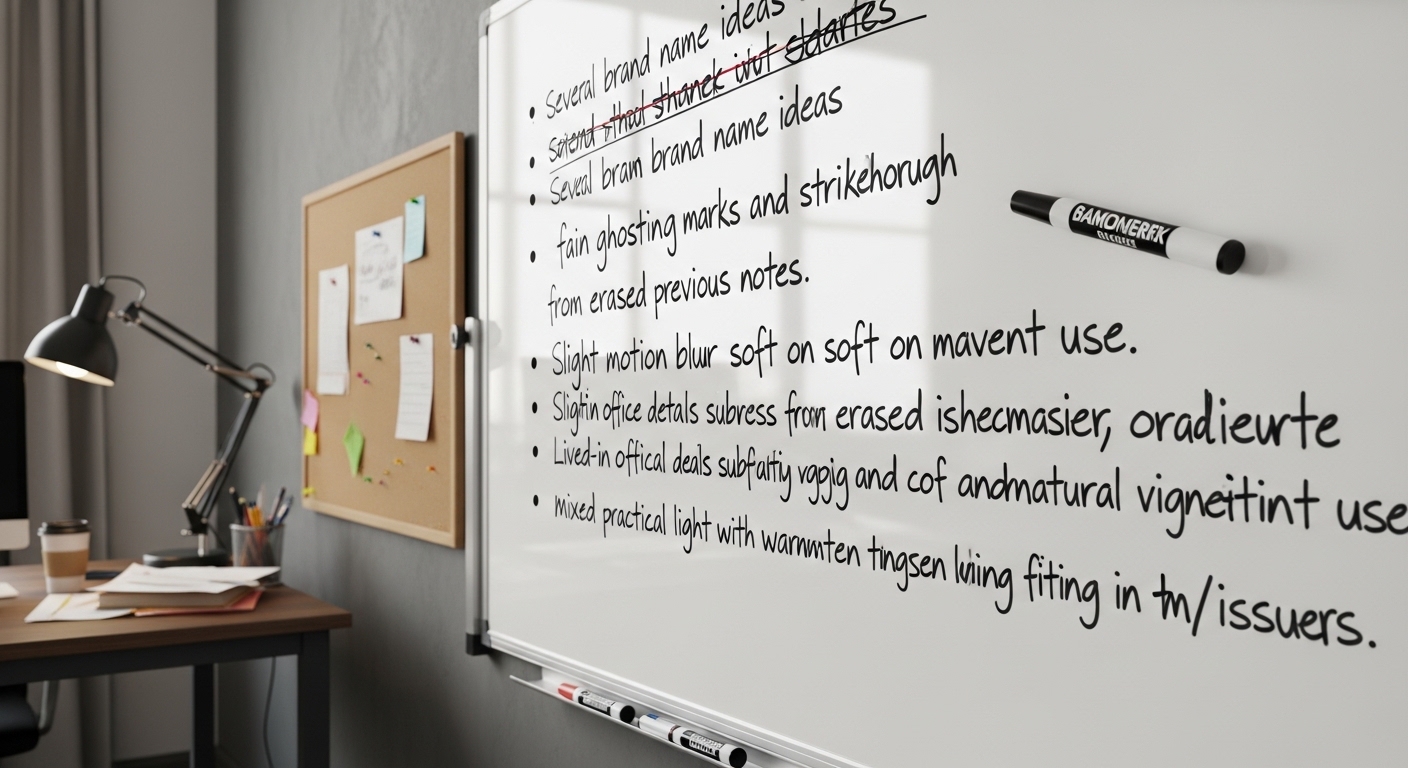 • Several brand name ideas
•
• Seveal bram brand name ideas
• fain ghosting marks and strikehorugh
from erased previous notes.
• Slight motion blur soft on soft on mavent use.
• Sligtin office detals subress from erased ishecmasier, oradieurte
• Lived-in offical deals subfaltiy vgpjg and cof andmatural vigneitint use
• mixed practical light with warnmten tingsen fiting in tm/issuers.
BAMONERFK